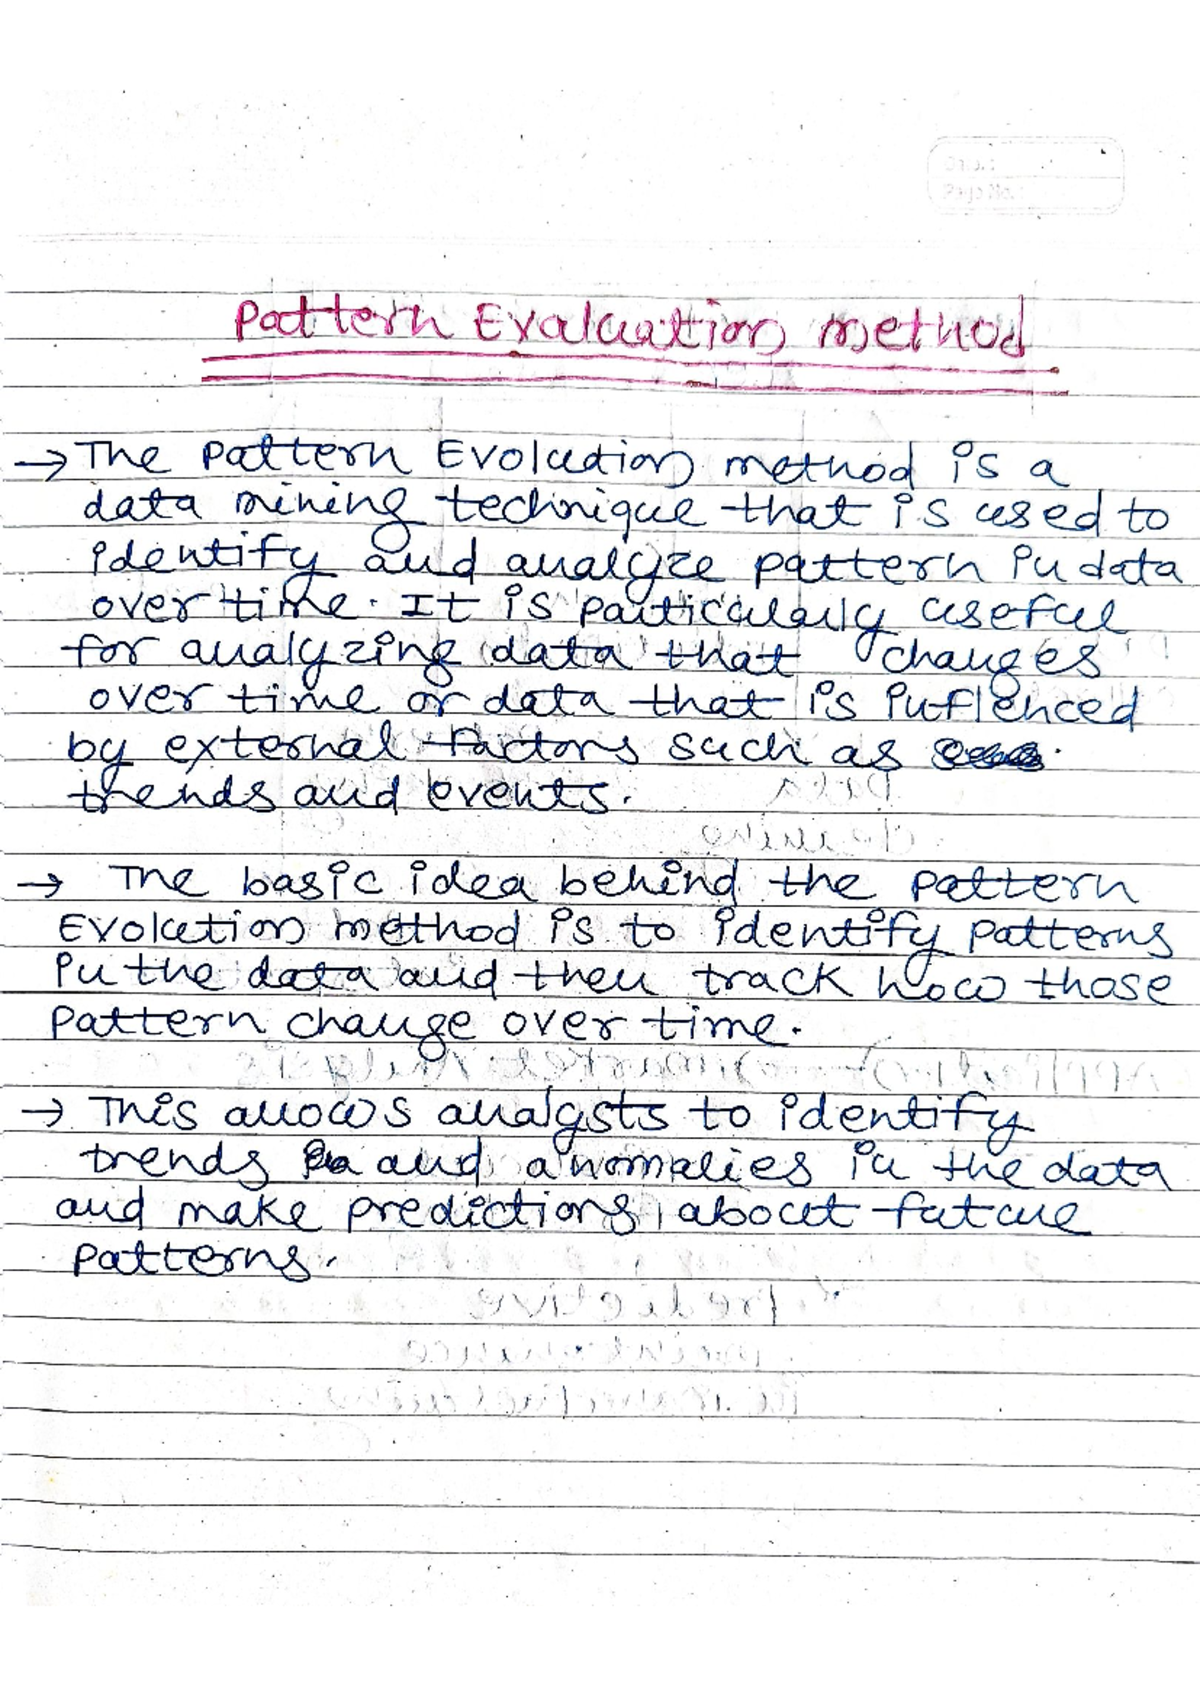 Pattern Evaluation method
→ The Pattern Evolution method is a
data mining technique that is used to
identify and analyze pattern in data
over time. It is particularly useful
for analyzing data that changes
over time or data that is influenced
by external factors such as
trends and events.
→ The basic idea behind the Pattern
Evolution method is to identify Patterns
in the data and then track how those
Pattern change over time.
→ This allows analysts to identify
trends and anomalies in the data
and make predictions about future
Patterns.